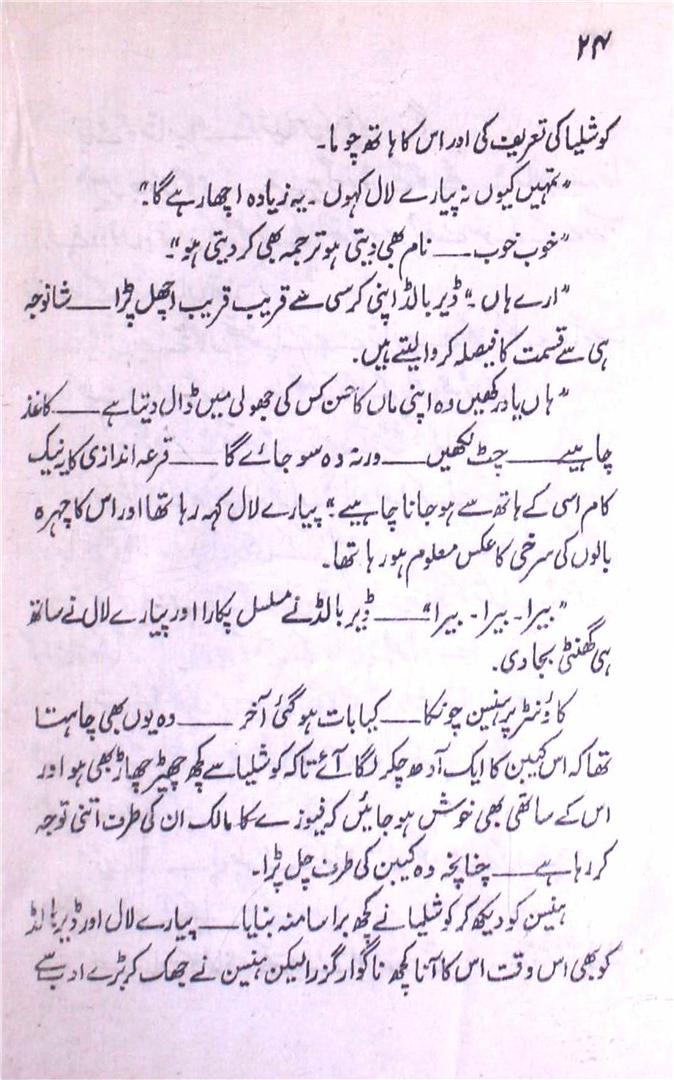 ۲۴
کوشلیا کی تعریف کی اور اس کا ہاتھ چوما۔
”تمہیں کیوں نہ پیارے لال کہوں۔ یہ زیادہ اچھا رہے گا۔“
”خوب خوب —— نام بھی دیتی ہو ترجمہ بھی کر دیتی ہو“۔
”ارے ہاں۔“ ڈیر بالڈ اپنی کرسی سے قریب قریب اچھل پڑا —— شانوجہ
ہی سے قسمت کا فیصلہ کروا لیتے ہیں۔
”ہاں یاد رکھیں وہ اپنی ماں کا حسن کس کی جھولی میں ڈال دیتا ہے —— کاغذ
چاہیے —— چٹ لکھیں —— ورنہ وہ سو جائے گا —— قرعہ اندازی کا یہ نیک
کام اسی کے ہاتھ سے ہو جانا چاہیے“ پیارے لال کہہ رہا تھا اور اس کا چہرہ
بالوں کی سرخی کا عکس معلوم ہو رہا تھا۔
”بیرا۔ بیرا۔ بیرا“ —— ڈیر بالڈ نے مسلسل پکارا اور پیارے لال نے ساتھ
ہی گھنٹی بجا دی۔
کاؤنٹر پر ہنسین چونکا —— کیا بات ہو گئی آخر —— وہ یوں بھی چاہتا
تھا کہ اس کیبن کا ایک آدھ چکر لگا آئے تاکہ کوشلیا سے کچھ چھیڑ چھاڑ بھی ہو اور
اس کے ساتھی بھی خوش ہو جائیں کہ فیوزے کا مالک ان کی طرف اتنی توجہ
کر رہا ہے —— چنانچہ وہ کیبن کی طرف چل پڑا۔
ہنسین کو دیکھ کر کوشلیا نے کچھ برا سا منہ بنایا —— پیارے لال اور ڈیر بالڈ
کو بھی اس وقت اس کا آنا کچھ ناگوار گزرا لیکن ہنسین نے جھک کر بڑے ادب سے